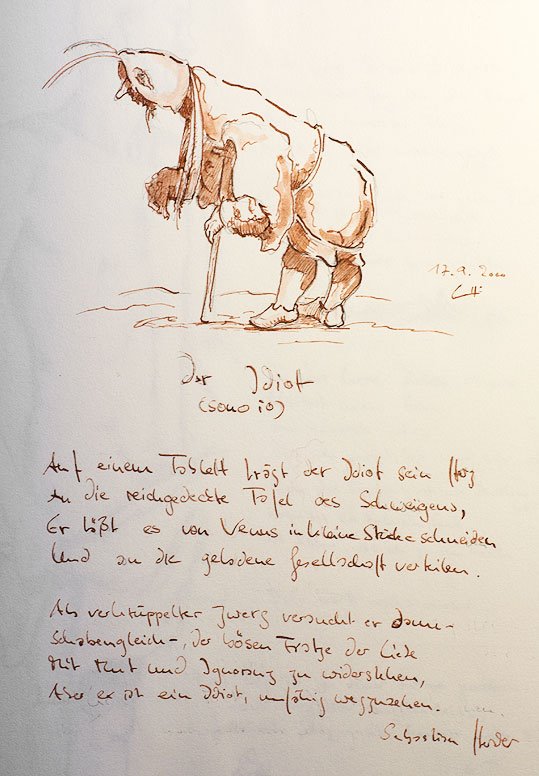 17.9.2000
Der Idiot
(sono io)
Auf einem Tablett trägt der Idiot sein Herz
An die reichgedeckte Tafel des Schweigens,
Er läßt es von Venus in kleine Stücke schneiden
Und an die geladene Gesellschaft verteilen.
Als verkrüppelter Zwerg versucht er dann-
Schabengleich-, der bösen Fratze der Liebe
Mit Mut und Ignoranz zu widerstehen,
Aber er ist ein Idiot, unfähig wegzusehen.
Sebastian